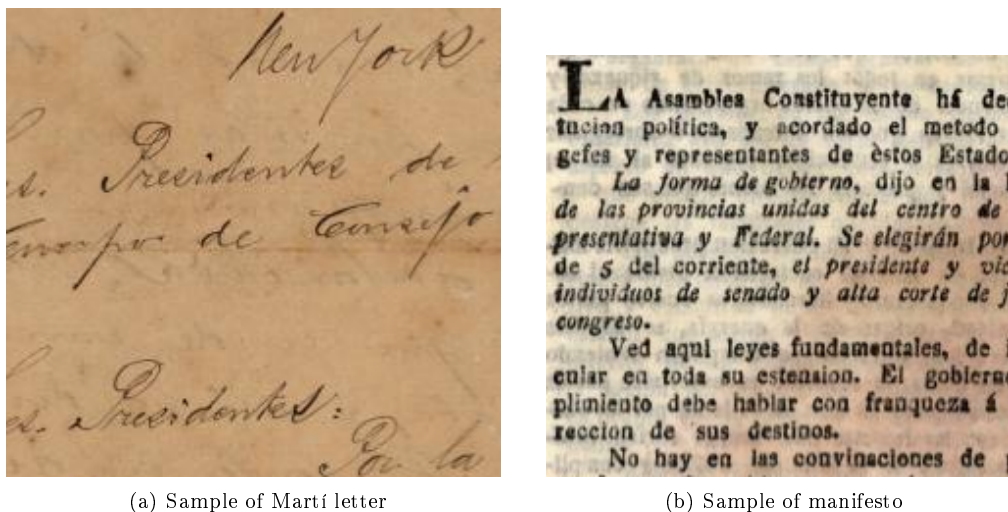 New York
es. Presidentes de
Cuerpo de Consejo
es. Presidentes:
Por la
(a) Sample of Martí letter
LA Asamblea Constituyente há de
tucion política, y acordado el metodo
gefes y representantes de èstos Estado
La forma de gobierno, dijo en la
de las provincias unidas del centro de
presentativa y Federal. Se elegirán por
de 5 del corriente, el presidente y vic
individuos de senado y alta corte de j
congreso.
Ved aqui leyes fundamentales, de
cular en toda su estension. El gobierno
plimiento debe hablar con franqueza á
reccion de sus destinos.
No hay en las convinaciones de
(b) Sample of manifesto